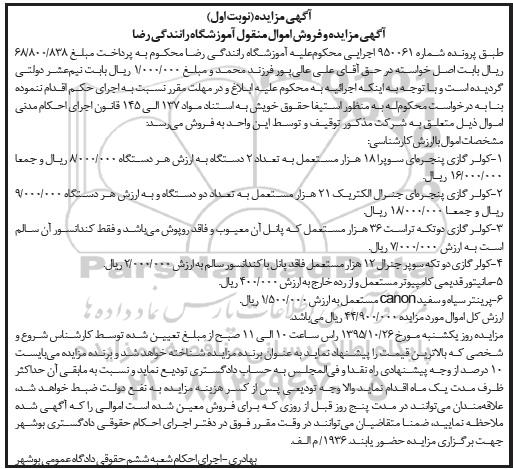 آگهی مزایده (نوبت اول)
آگهی مزایده و فروش اموال منقول آموزشگاه رانندگی رضا
طبق پرونده شماره ۹۵۰۰۶۱ اجرایی محکوم‌علیه آموزشگاه رانندگی رضا محکوم به پرداخت مبلغ ۶۸/۸۰۰/۸۳۸
ریال بابت اصل خواسته در حق آقای علی عالی‌پور فرزند محمد و مبلغ ۱/۰۰۰/۰۰۰ ریال بابت نیم‌عشر دولتی
گردیده است و با توجه به اینکه اجرائیه به محکوم علیه ابلاغ و در مهلت مقرر نسبت به اجرای حکم اقدام ننموده
بنا به درخواست محکوم‌له به منظور استیفا حقوق خویش به استناد مواد ۱۳۷ الی ۱۴۵ قانون اجرای احکام مدنی
اموال ذیل متعلق به شرکت مذکور توقیف و توسط این واحد به فروش می‌رسد:
مشخصات اموال با ارزش کارشناسی:
۱-کولر گازی پنجره‌ای سوپرا ۱۸ هزار مستعمل به تعداد ۲ دستگاه به ارزش هر دستگاه ۸/۰۰۰/۰۰۰ ریال و جمعا
۱۶/۰۰۰/۰۰۰ ریال.
۲-کولر گازی پنجره‌ای جنرال الکتریک ۲۱ هزار مستعمل به تعداد دو دستگاه و به ارزش هر دستگاه ۹/۰۰۰/۰۰۰
ریال و جمعا ۱۸/۰۰۰/۰۰۰ ریال.
۳-کولر گازی دوتکه تراست ۳۶ هزار مستعمل که پانل آن معیوب و فاقد روپوش می‌باشد و فقط کندانسور آن سالم
است به ارزش ۷/۰۰۰/۰۰۰ ریال.
۴-کولر گازی دو تکه سوپر جنرال ۱۲ هزار مستعمل فاقد پانل با کندانسور سالم به ارزش ۲/۰۰۰/۰۰۰ ریال.
۵-مانیتور قدیمی کامپیوتر مستعمل و از رده خارج به ارزش ۴۰۰/۰۰۰ ریال.
۶-پرینتر سیاه و سفید canon مستعمل به ارزش ۱/۵۰۰/۰۰۰ ریال.
ارزش کل اموال مورد مزایده ۴۴/۹۰۰/۰۰۰ ریال می‌باشد.
مزایده روز یکشنبه مورخ ۱۳۹۵/۱۰/۲۶ راس ساعت ۱۰ الی ۱۱ صبح از مبلغ تعیین شده توسط کارشناس شروع و
شخصی که بالاترین قیمت را پیشنهاد نماید به عنوان برنده مزایده شناخته خواهد شد و برنده مزایده می‌بایست
۱۰ درصد از وجه پیشنهادی راه نقدا و فی‌المجلس به حساب دادگستری تودیع نماید و نسبت به مابقی آن حداکثر
ظرف مدت یک ماه اقدام نماید والا وجه تودیعی پس از کسر هزینه مزایده به نفع دولت ضبط خواهد شد،
علاقه‌مندان می‌توانند در مدت پنج روز قبل از روزی که برای فروش معین شده است اموالی را که آگهی شده
ملاحظه نمایید، ضمنا متقاضیان می‌توانند در وقت مقرر فوق در دفتر اجرای احکام حقوقی دادگستری بوشهر
جهت برگزاری مزایده حضور یابند. ۱۹۳۶/ م الف.
بهادری-اجرای احکام شعبه ششم حقوقی دادگاه عمومی بوشهر